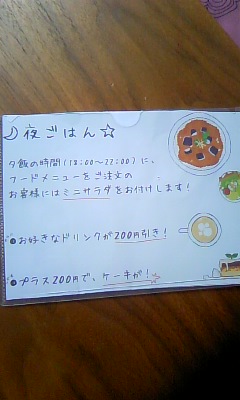 夜ごはん☆
夕飯の時間(18:00〜22:00)に、
フードメニューをご注文の
お客様にはミニサラダをお付けします!
お好きなドリンクが200円引き!
プラス200円で、ケーキが!